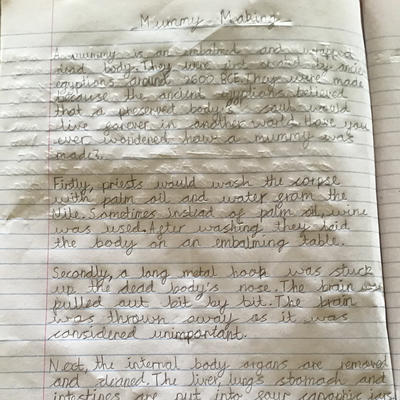 Mummy Making
A mummy is an embalmed and wrapped
dead body. They were first made by ancient
egyptians around 2600 BCE. They were made
because the ancient egyptians believed
that a preserved body's soul would
live forever in another world. Have you
ever wondered how a mummy was
made?
Firstly, priests would wash the corpse
with palm oil and water from the
Nile. Sometimes instead of palm oil, wine
was used. After washing they laid
the body on an embalming table.
Secondly, a long metal hook was stuck
up the dead body's nose. The brain was
pulled out bit by bit. The brain
was thrown away as it was
considered unimportant.
Next, the internal body organs are removed
and cleaned. The liver, lungs stomach and
intestines are put into four canopic jars